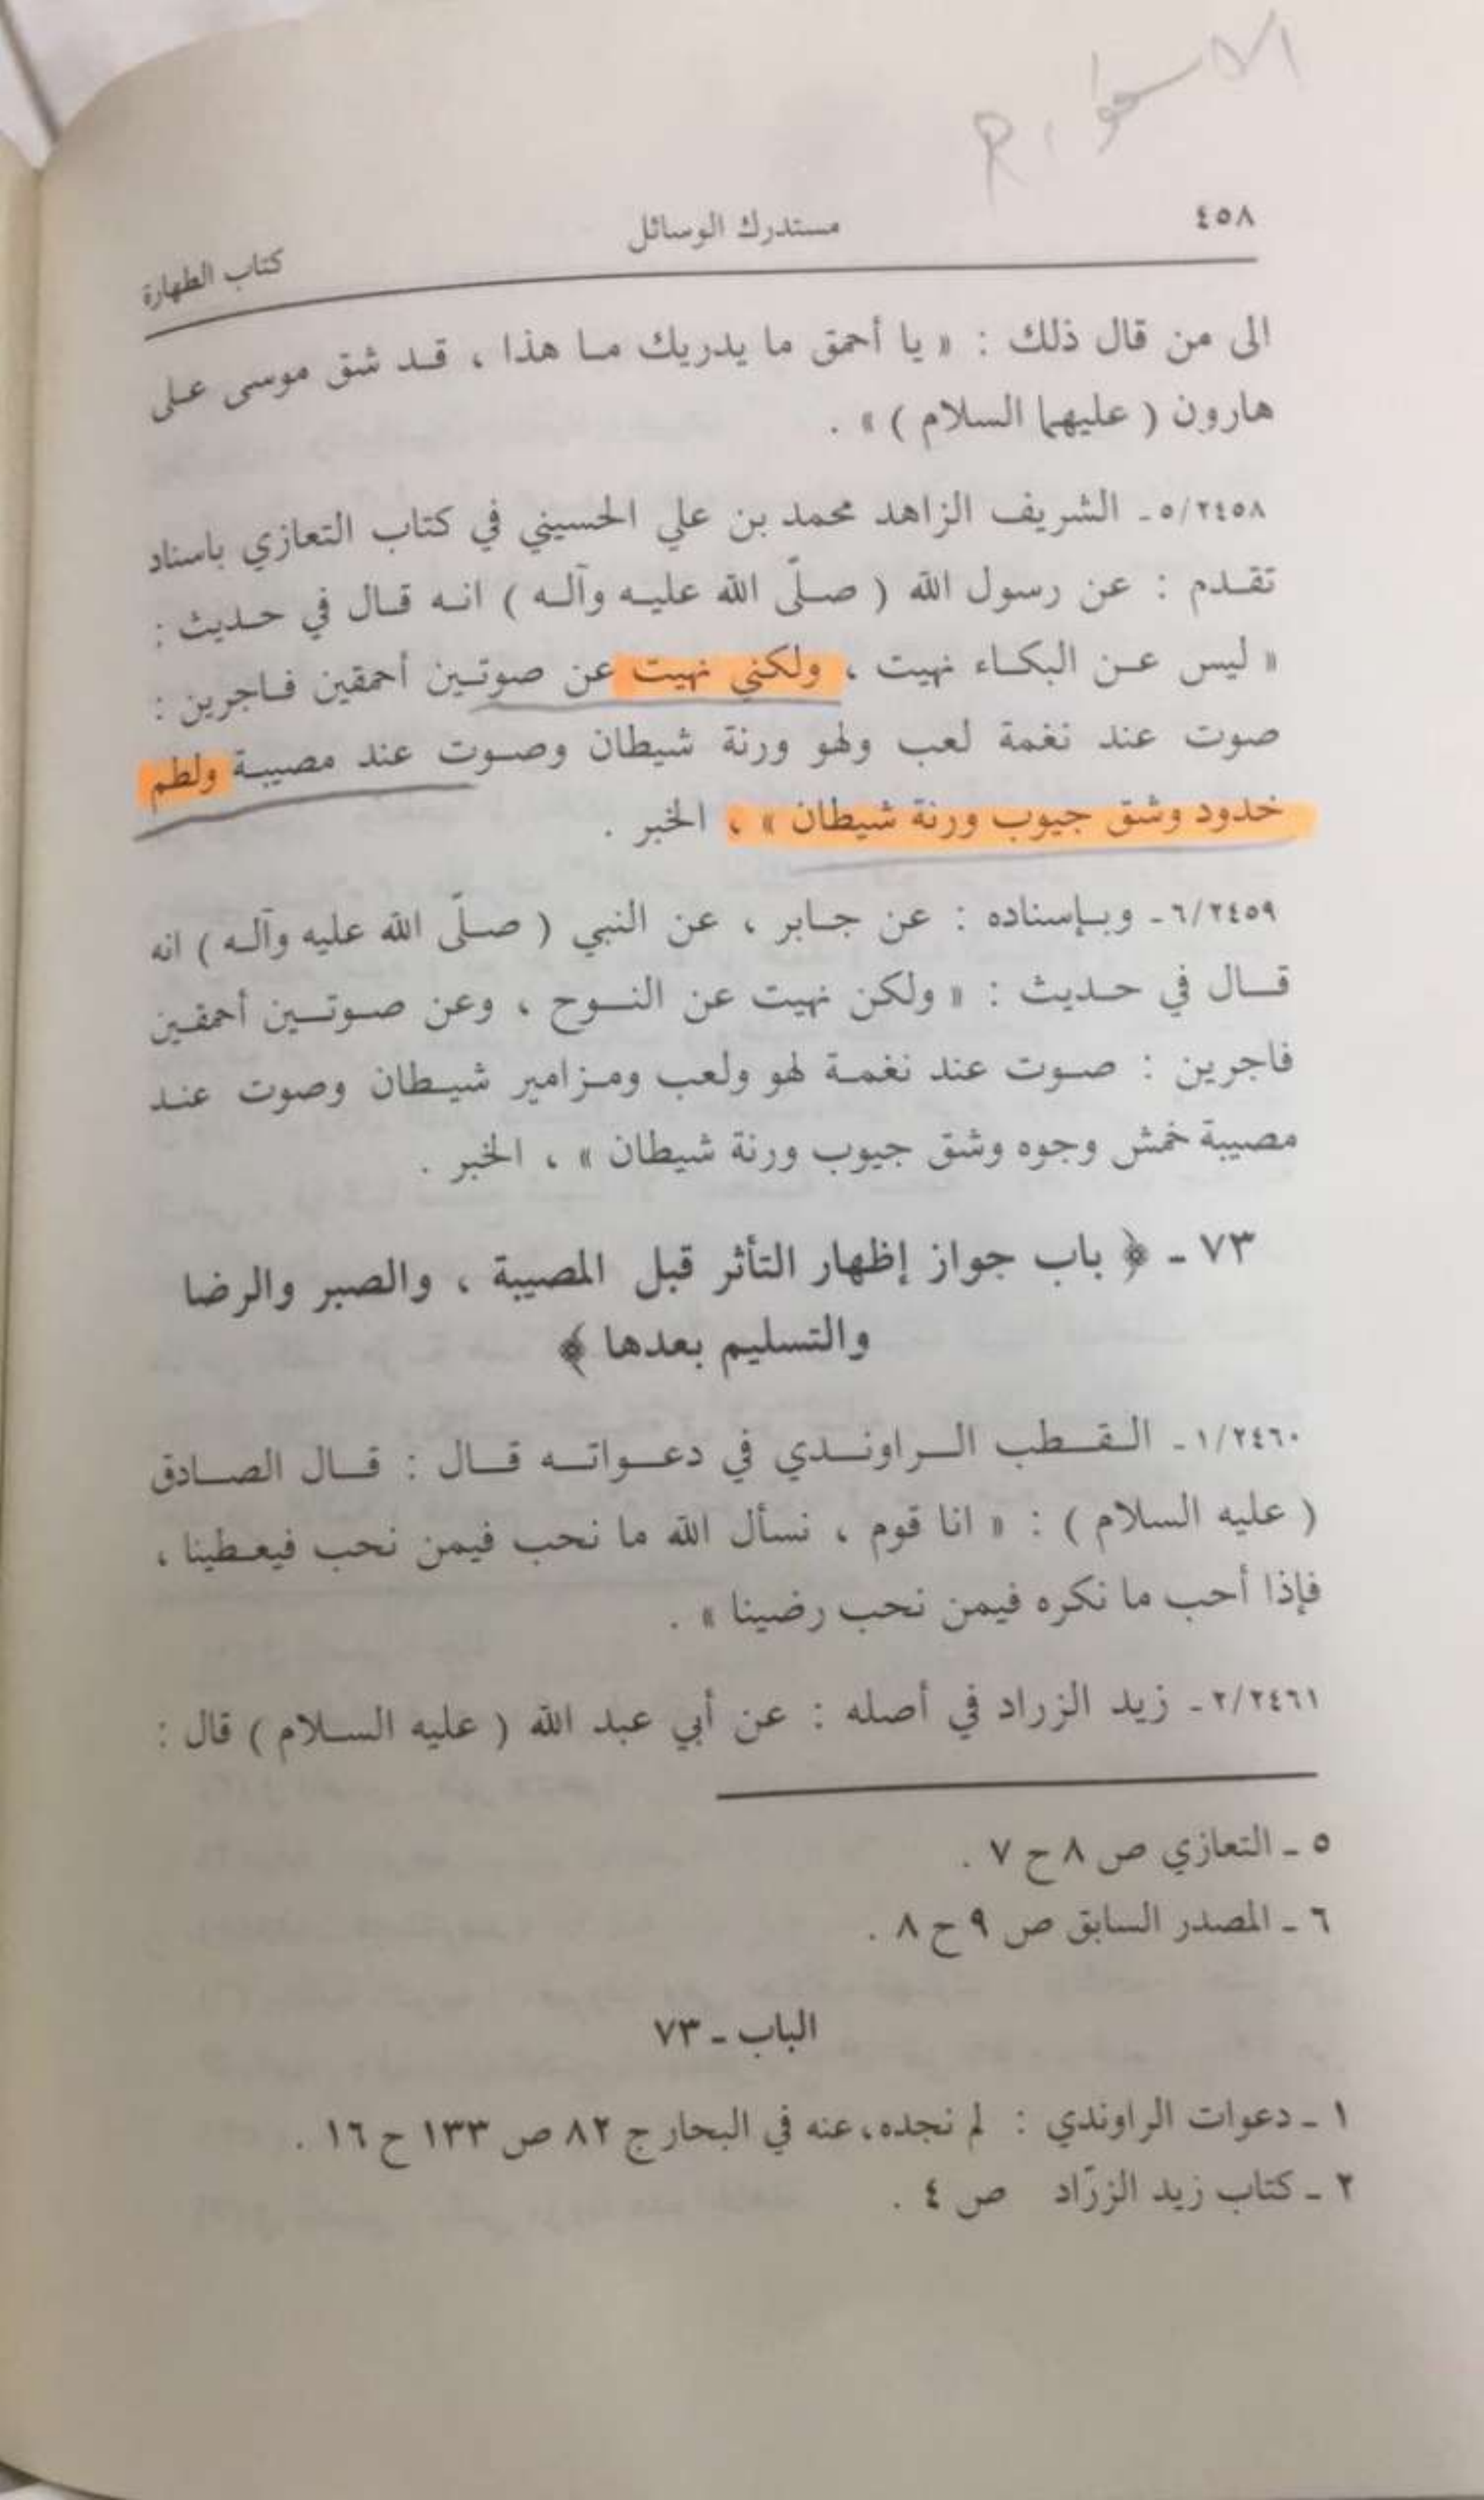 ٤٥٨
مستدرك الوسائل
كتاب الطهارة
الى من قال ذلك : « يا أحمق ما يدريك ما هذا ، قد شق موسى على
هارون ( عليهما السلام ) » .
٥/٢٤٥٨ـ الشريف الزاهد محمد بن علي الحسيني في كتاب التعازي باسناد
تقدم : عن رسول الله ( صلّى الله عليه وآله ) انه قال في حديث :
« ليس عن البكاء نهيت ، ولكني نهيت عن صوتين أحمقين فاجرين :
صوت عند نغمة لعب ولهو ورنة شيطان وصوت عند مصيبة ولطم
خدود وشق جيوب ورنة شيطان » ، الخبر .
٦/٢٤٥٩ـ وبإسناده : عن جابر ، عن النبي ( صلّى الله عليه وآله ) انه
قال في حديث : « ولكن نهيت عن النوح ، وعن صوتين أحمقين
فاجرين : صوت عند نغمة لهو ولعب ومزامير شيطان وصوت عند
مصيبة خمش وجوه وشق جيوب ورنة شيطان » ، الخبر .
٧٣ ـ ﴿ باب جواز إظهار التأثر قبل المصيبة ، والصبر والرضا
والتسليم بعدها ﴾
١/٢٤٦٠ـ القطب الراوندي في دعواته قال : قال الصادق
( عليه السلام ) : « انا قوم ، نسأل الله ما نحب فيمن نحب فيعطينا ،
فإذا أحب ما نكره فيمن نحب رضينا » .
٢/٢٤٦١ـ زيد الزراد في أصله : عن أبي عبد الله ( عليه السلام ) قال :
٥ ـ التعازي ص ٨ ح ٧ .
٦ ـ المصدر السابق ص ٩ ح ٨ .
الباب ـ ٧٣
١ ـ دعوات الراوندي : لم نجده، عنه في البحار ج ٨٢ ص ١٣٣ ح ١٦ .
٢ ـ كتاب زيد الزرّاد ص ٤ .